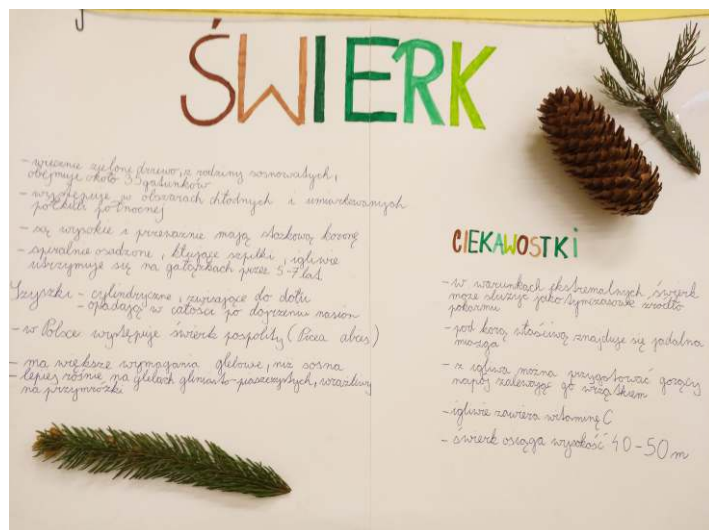 ŚWIERK
- wiecznie zielone drzewo, z rodziny sosnowatych,
obejmuje około 35 gatunków
- występuje w obszarach chłodnych i umiarkowanych
półkuli północnej
- są wysokie i przeważnie mają stożkową koronę
- spiralnie osadzone, kłujące szpilki, igliwie
utrzymuje się na gałązkach przez 5-7 lat
Szyszki - cylindryczne, zwisające do dołu
- opadają w całości po dojrzeniu nasion
- w Polsce występuje świerk pospolity (Picea abies)
- ma większe wymagania glebowe, niż sosna
- lepiej rośnie na glebach gliniasto-piaszczystych, wrażliwy
na przymrozki
CIEKAWOSTKI
- w warunkach ekstremalnych świerk
może służyć jako tymczasowe źródło
pokarmu
- pod korą właściwą znajduje się jadalna
miazga
- z igliwa można przygotować gorący
napój zalewając go wrzątkiem
- igliwie zawiera witaminę C
- świerk osiąga wysokość 40-50 m